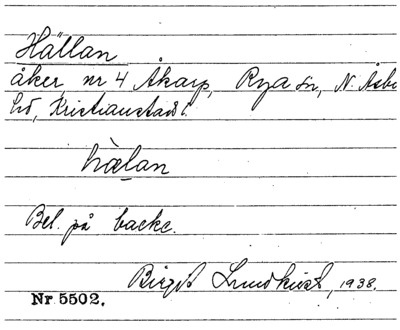 Hällan
åker, nr 4 Åkarp, Rya sn, N. Åsbo
hd, Kristianstads l.
hælan
Bel. på backe.
Birgit Lundkvist, 1938.
Nr. 5502.